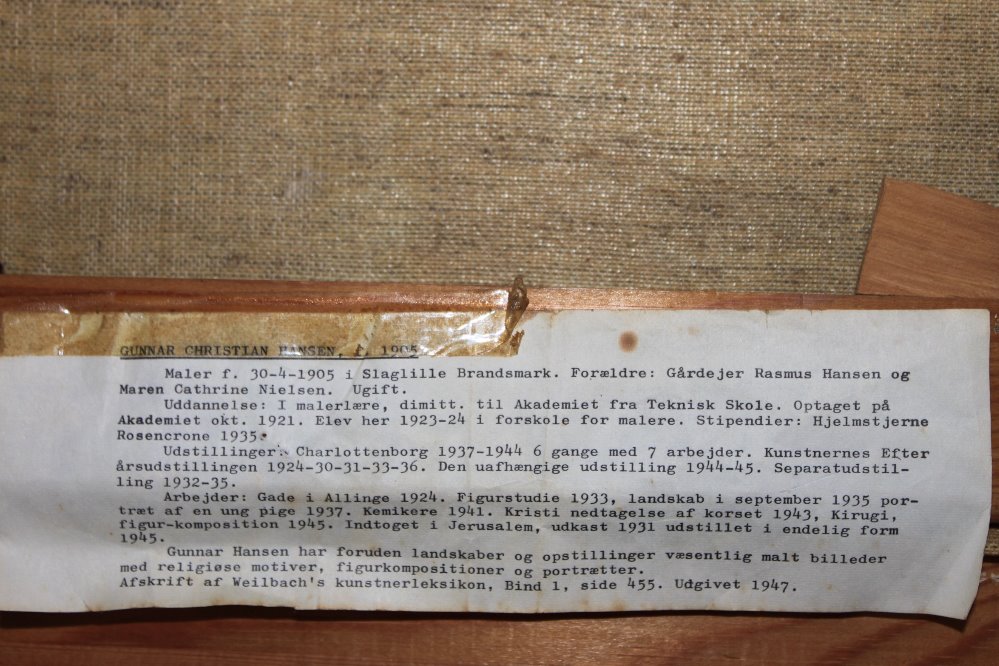 GUNNAR CHRISTIAN HANSEN, f. 1905
Maler f. 30-4-1905 i Slaglille Brandsmark. Forældre: Gårdejer Rasmus Hansen og
Maren Cathrine Nielsen. Ugift.
Uddannelse: I malerlære, dimitt. til Akademiet fra Teknisk Skole. Optaget på
Akademiet okt. 1921. Elev her 1923-24 i forskole for malere. Stipendier: Hjelmstjerne
Rosencrone 1935.
Udstillinger: Charlottenborg 1937-1944 6 gange med 7 arbejder. Kunstnernes Efter
årsudstillingen 1924-30-31-33-36. Den uafhængige udstilling 1944-45. Separatudstil-
ling 1932-35.
Arbejder: Gade i Allinge 1924. Figurstudie 1933, landskab i september 1935 por-
træt af en ung pige 1937. Kemikere 1941. Kristi nedtagelse af korset 1943, Kirugi,
figur-komposition 1945. Indtoget i Jerusalem, udkast 1931 udstillet i endelig form
1945.
Gunnar Hansen har foruden landskaber og opstillinger væsentlig malt billeder
med religiøse motiver, figurkompositioner og portrætter.
Afskrift af Weilbach's kunstnerleksikon, Bind 1, side 455. Udgivet 1947.